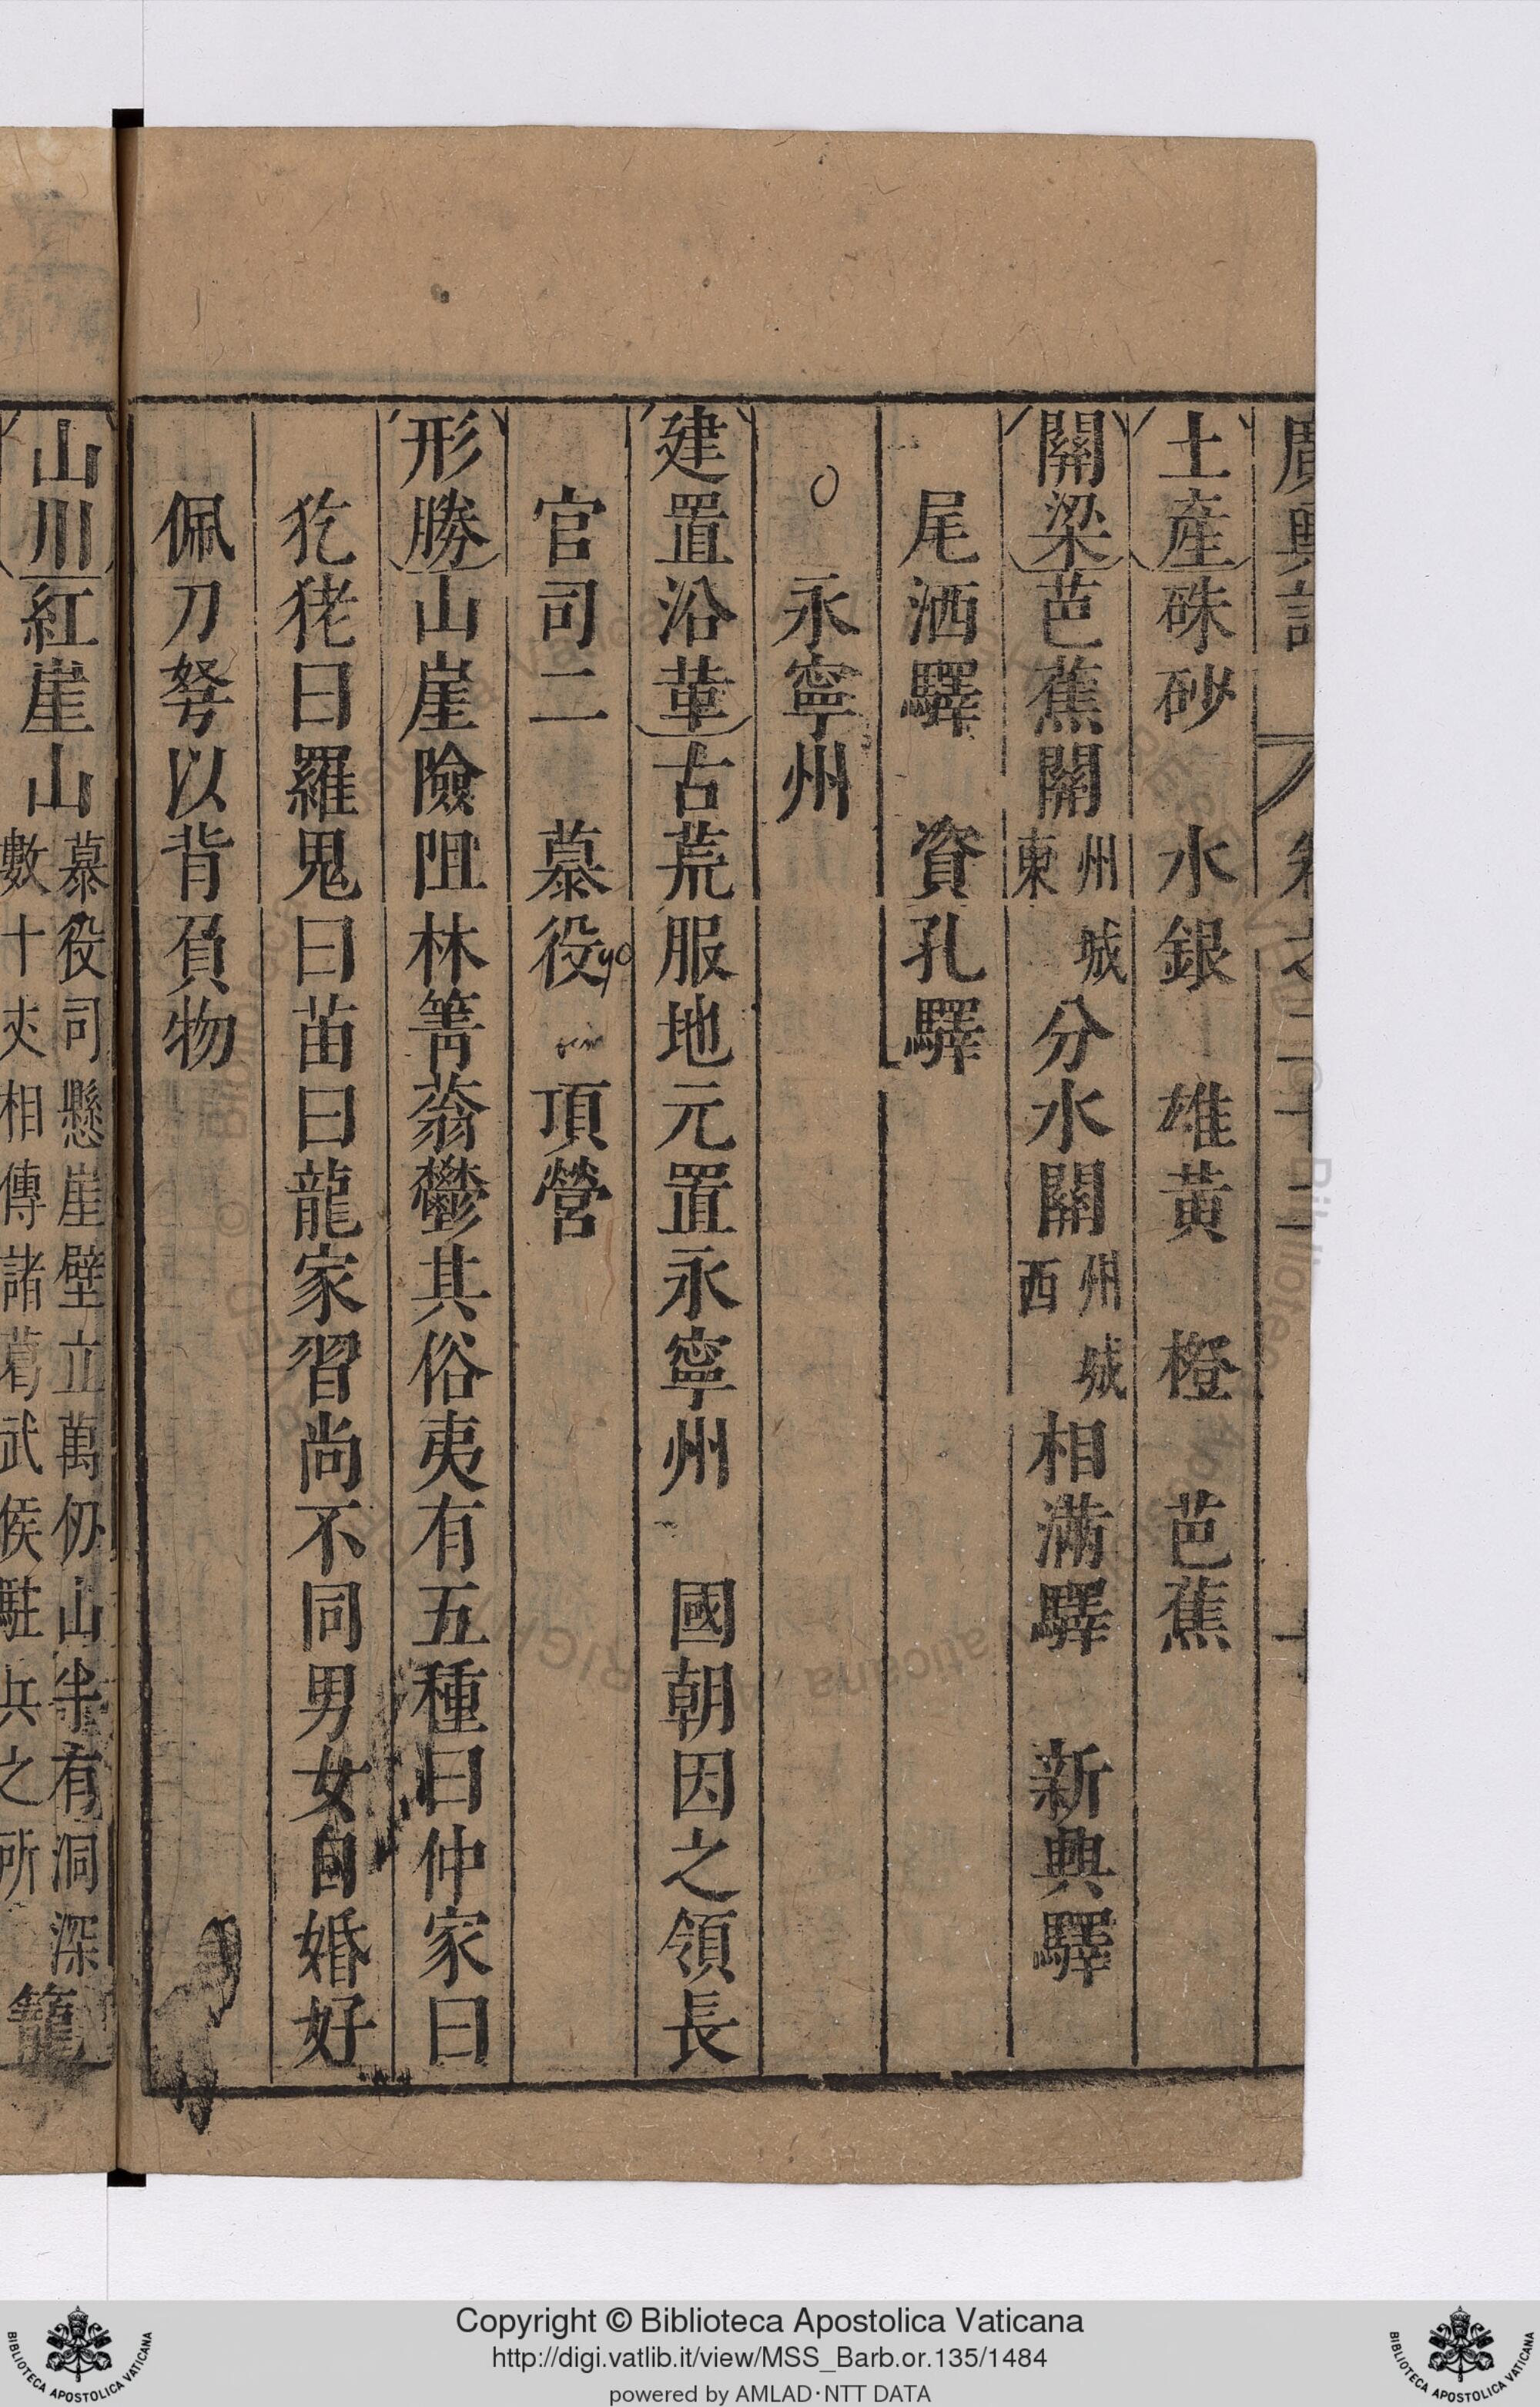 廣輿記 卷之二十二
土産硃砂 水銀 雄黃 橙 芭蕉
關梁芭蕉關州城東 分水關州城西 相滿驛 新興驛
尾洒驛 資孔驛
永寧州
建置沿革古荒服地元置永寧州 國朝因之領長
官司二 慕役yo 頂營
形勝山崖險阻林箐蓊鬱其俗夷有五種曰仲家曰
犵狫曰羅鬼曰苗曰龍家習尚不同男女自婚好
佩刀弩以背負物
山川紅崖山慕役司懸崖壁立萬仞山半有洞深
數十丈相傳諸葛武侯駐兵之所 籠
Copyright © Biblioteca Apostolica Vaticana
http://digi.vatlib.it/view/MSS_Barb.or.135/1484
powered by AMLAD·NTT DATA
BIBLIOTECA APOSTOLICA VATICANA
BIBLIOTECA APOSTOLICA VATICANA